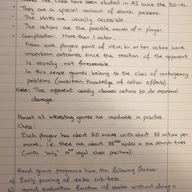 Games have been studied in AI since the 50-ies.
- They are a special amount of search problems.
- The states are usually accessible.
- The actions are the possible moves of a player.
- Complication: More than 1 actor.
- From one players point of view, his or her actions have
uncertain outcomes, since the reaction of the opponent
is usually not foreseeable.
- In this sense games belong to the class of contingency
problems (uncertain knowledge of action effects)
Note: The opponent usually chooses actions to do maximal
damage.
Almost all interesting games are unsolvable in practice.
Chess:
Each player has about 50 moves with about 35 actions per
move, i.e. there are about 35^100 nodes in the search tree
(with "only" legal chess positions).
Good game programs have the following factors:
Early pruning of useless sub trees.
Good evaluation function of states without doing a